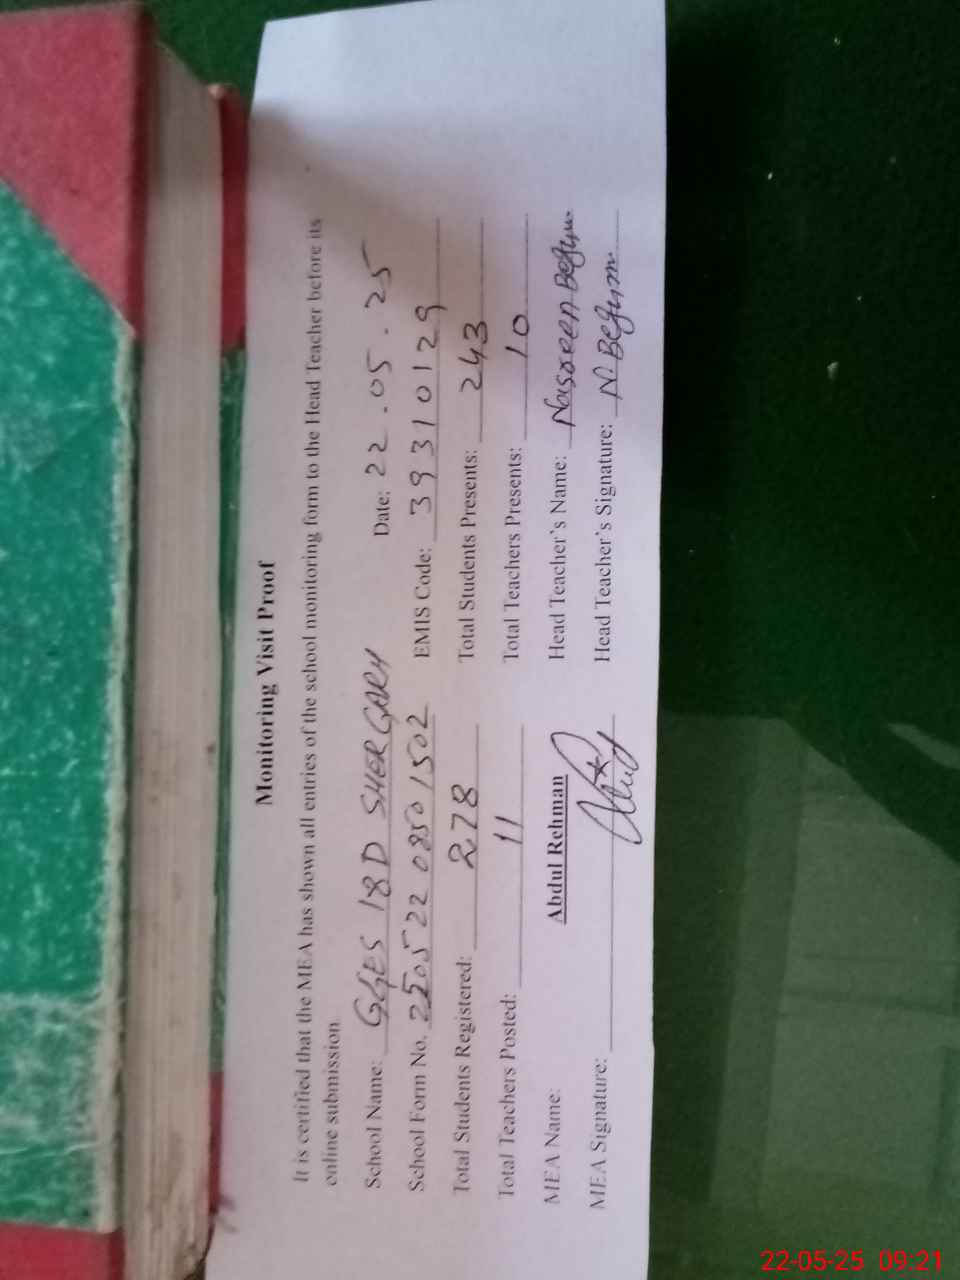 Monitoring Visit Proof
It is certified that the MEA has shown all entries of the school monitoring form to the Head Teacher before its
online submission
School Name: GGES 18D SHER GARH Date: 22.05.25
School Form No. 250522 0850 1502 EMIS Code: 39310129
Total Students Registered: 278 Total Students Presents: 243
Total Teachers Posted: 11 Total Teachers Presents: 10
MEA Name: Abdul Rehman Head Teacher's Name: Nasreen Begum
MEA Signature: Head Teacher's Signature: N Begum
22-05-25 09:21